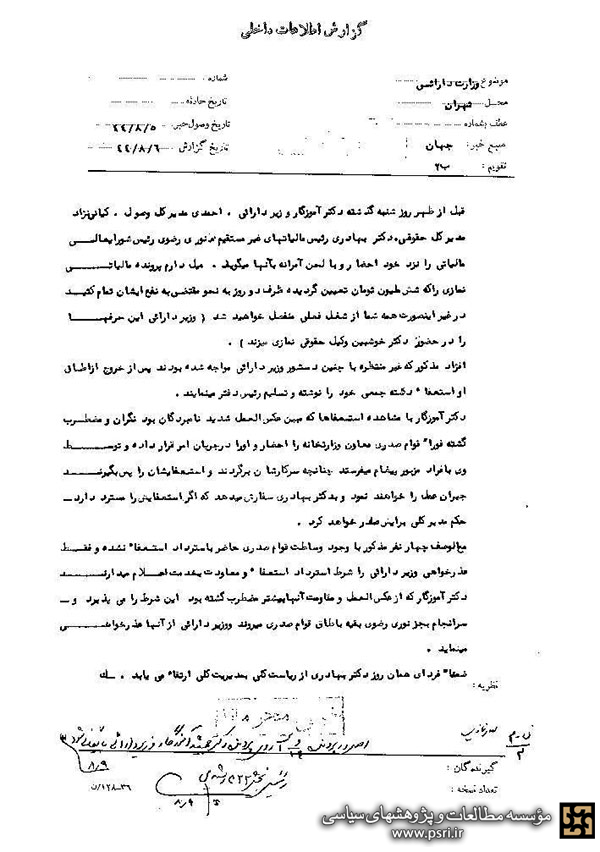 گزارش اطلاعات داخلی
موضوع وزارت دارائی
محل تهران
عطف بشماره
منبع خبر: جهان
تقویم: ب۲
شماره:
تاریخ حادثه
تاریخ وصول خبر ۴۴/۸/۵
تاریخ گزارش ۴۴/۸/۶
قبل از ظهر روز شنبه گذشته دکتر آموزگار وزیر دارائی ، احمدی مدیرکل وصول ، کیانی نژاد
مدیرکل حقوقی، دکتر بهادری رئیس مالیاتهای غیر مستقیم و نوری رضوی رئیس شورایعالی
مالیاتی را نزد خود احضار و با لحن آمرانه بآنها میگوید ، میل دارم پرونده مالیاتی
نمازی را که شش ملیون تومان تعیین گردیده ظرف دو روز به نحو مقتضی به نفع ایشان تمام کنید
در غیر اینصورت همه شما از شغل فعلی منفصل خواهید شد ( وزیر دارائی این حرفها
را در حضور دکتر خوشبین وکیل حقوقی نمازی میزند ) .
افراد مذکور که غیر منتظره با چنین دستور وزیر دارائی مواجه شده بودند پس از خروج از اطاق
او استعفاء دسته جمعی خود را نوشته و تسلیم رئیس دفتر مینمایند .
دکتر آموزگار با مشاهده استعفاها که مبین عکس العمل شدید نامبردگان بود نگران و مضطرب
گشته فوراً قوام صدری معاون وزارتخانه را احضار و او را در جریان امر قرار داده و توسط
وی بافراد مزبور پیغام میفرستد چنانچه سرکارشان برگردند و استعفایشان را پس بگیرند
جبران عمل را خواهند نمود و بدکتر بهادری سفارش میدهد که اگر استعفایش را مسترد دارد
حکم مدیرکلی برایش صادر خواهد کرد .
مع الوصف چهار نفر مذکور با وجود وساطت قوام صدری حاضر باسترداد استعفاء نشده و فقط
عذرخواهی وزیر دارائی را شرط استرداد استعفاء و معاودت بخدمت اعلام میدارند
دکتر آموزگار که از عکس العمل و مقاومت آنها بیشتر مضطرب گشته بود این شرط را می پذیرد و
سرانجام بجز نوری رضوی بقیه باطاق قوام صدری میروند و وزیر دارائی از آنها عذرخواهی
مینماید .
ضمناً فردای همان روز دکتر بهادری از ریاست کلی بمدیریت کلی ارتقاء می یابد . ک
نظریه:
گیرندگان:
تعداد نسخه:
۸/۹
۸/۹
مؤسسه مطالعات و پژوهشهای سیاسی
www.psri.ir